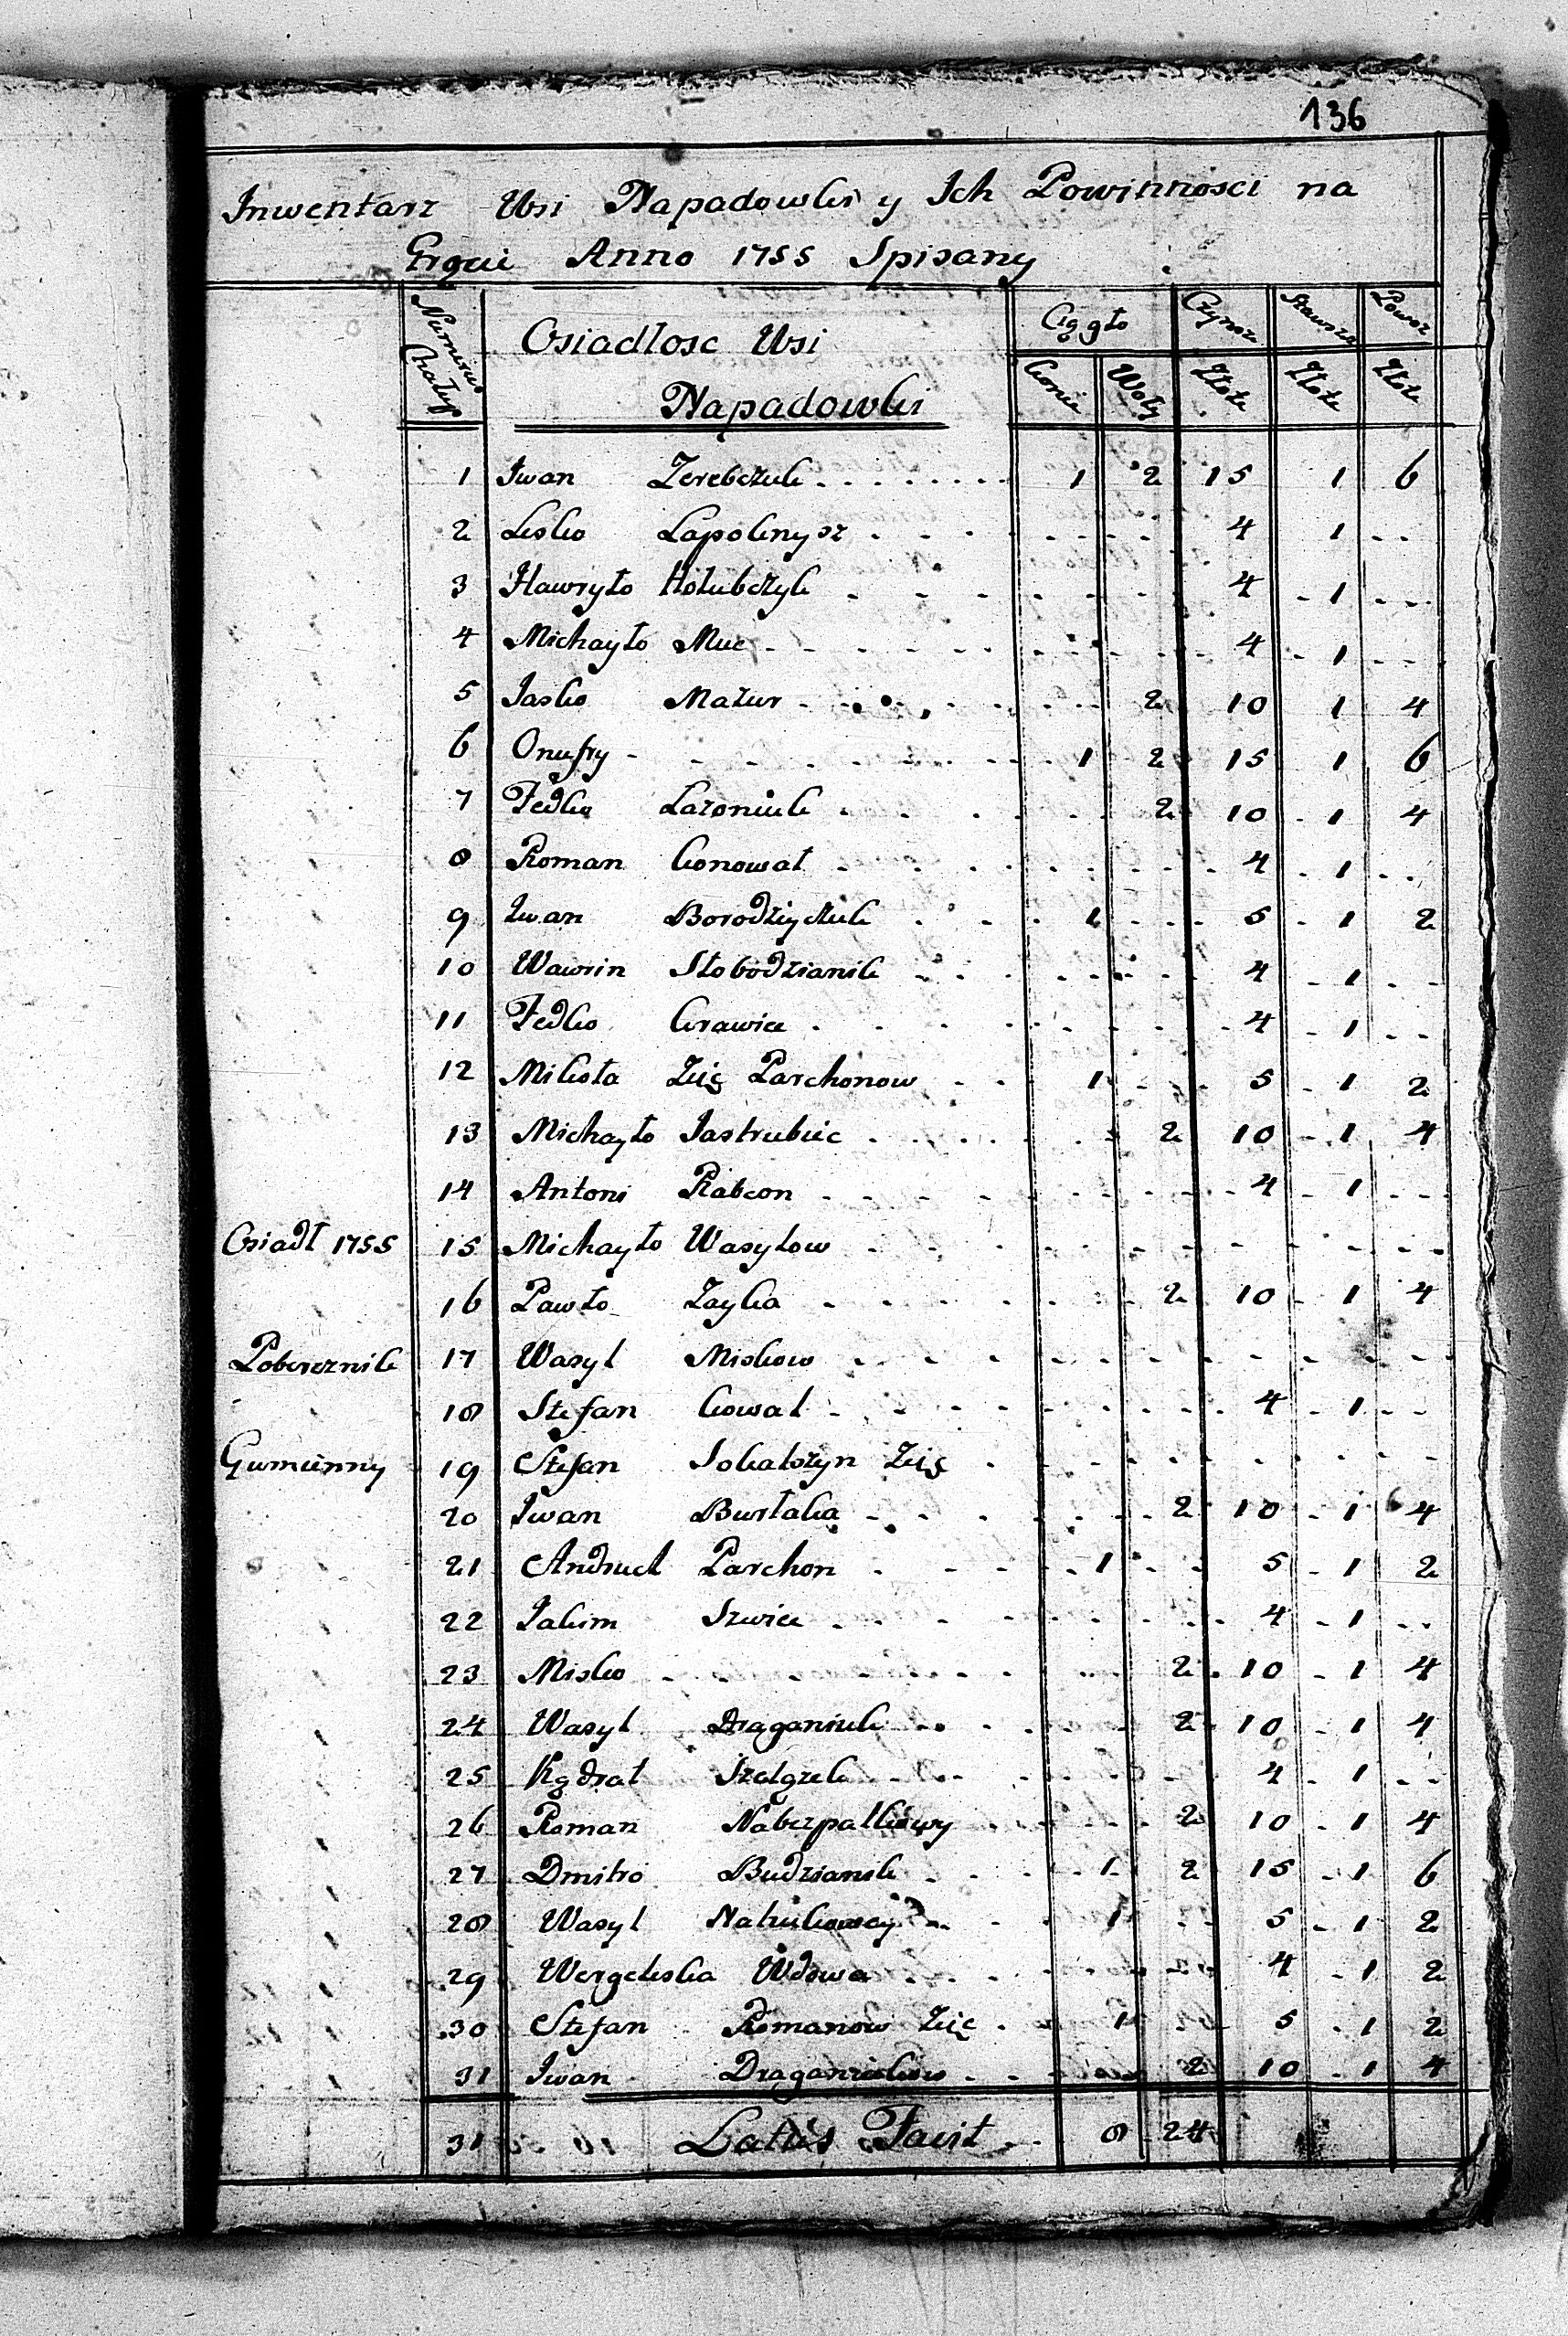 136
Inwentarz Wsi Napadowki y Ich Powinnosci na
Anno 1755 Spisany
Numerus Chałup
Osiadłosc Wsi
Napadowki
Ciągło Czynsz Powoz
Konie Woły Złote Złote Złote
1 Iwan Zerebczuk 1 2 15 1 6
2 Lesko Lapoknysz 4 1
3 Hawryło Hołubczyk 4 1
4 Michayło Muc 4 1
5 Jasko Mazur 2 10 1 4
6 Onufry 1 2 15 1 6
7 Fedko Lazoniuk 2 10 1 4
8 Roman Konował 4 1
9 Iwan 1 5 1 2
10 Wawrin Słobodzianik 4 1
11 Fedko Krawiec 4 1
12 Mikoła Zięc Parchonow 1 5 1 2
13 Michayło Jastrubiec 2 10 1 4
14 Antoni 4 1
Osiadł 1755 15 Michayło Wasylow
16 Pawło Zayka 2 10 1 4
Pobereznik 17 Wasyl Miskow
18 Stefan Kowal 4 1
Gumienny 19 Stefan Sokalszyn Zięc
20 Iwan Burłaka 2 10 1 4
21 Andruch Parchon 1 5 1 2
22 Jakim Szwiec 4 1
23 Misko 2 10 1 4
24 Wasyl Draganiuk 2 10 1 4
25 Kądrat 4 1
26 Roman 2 10 1 4
27 Dmitro Budzianik 1 2 15 1 6
28 Wasyl 1 5 1 2
29 Wdowa 4 1 2
30 Stefan Romanow Zięc 1 5 1 2
31 Iwan 2 10 1 4
31 Latus Facit 8 24